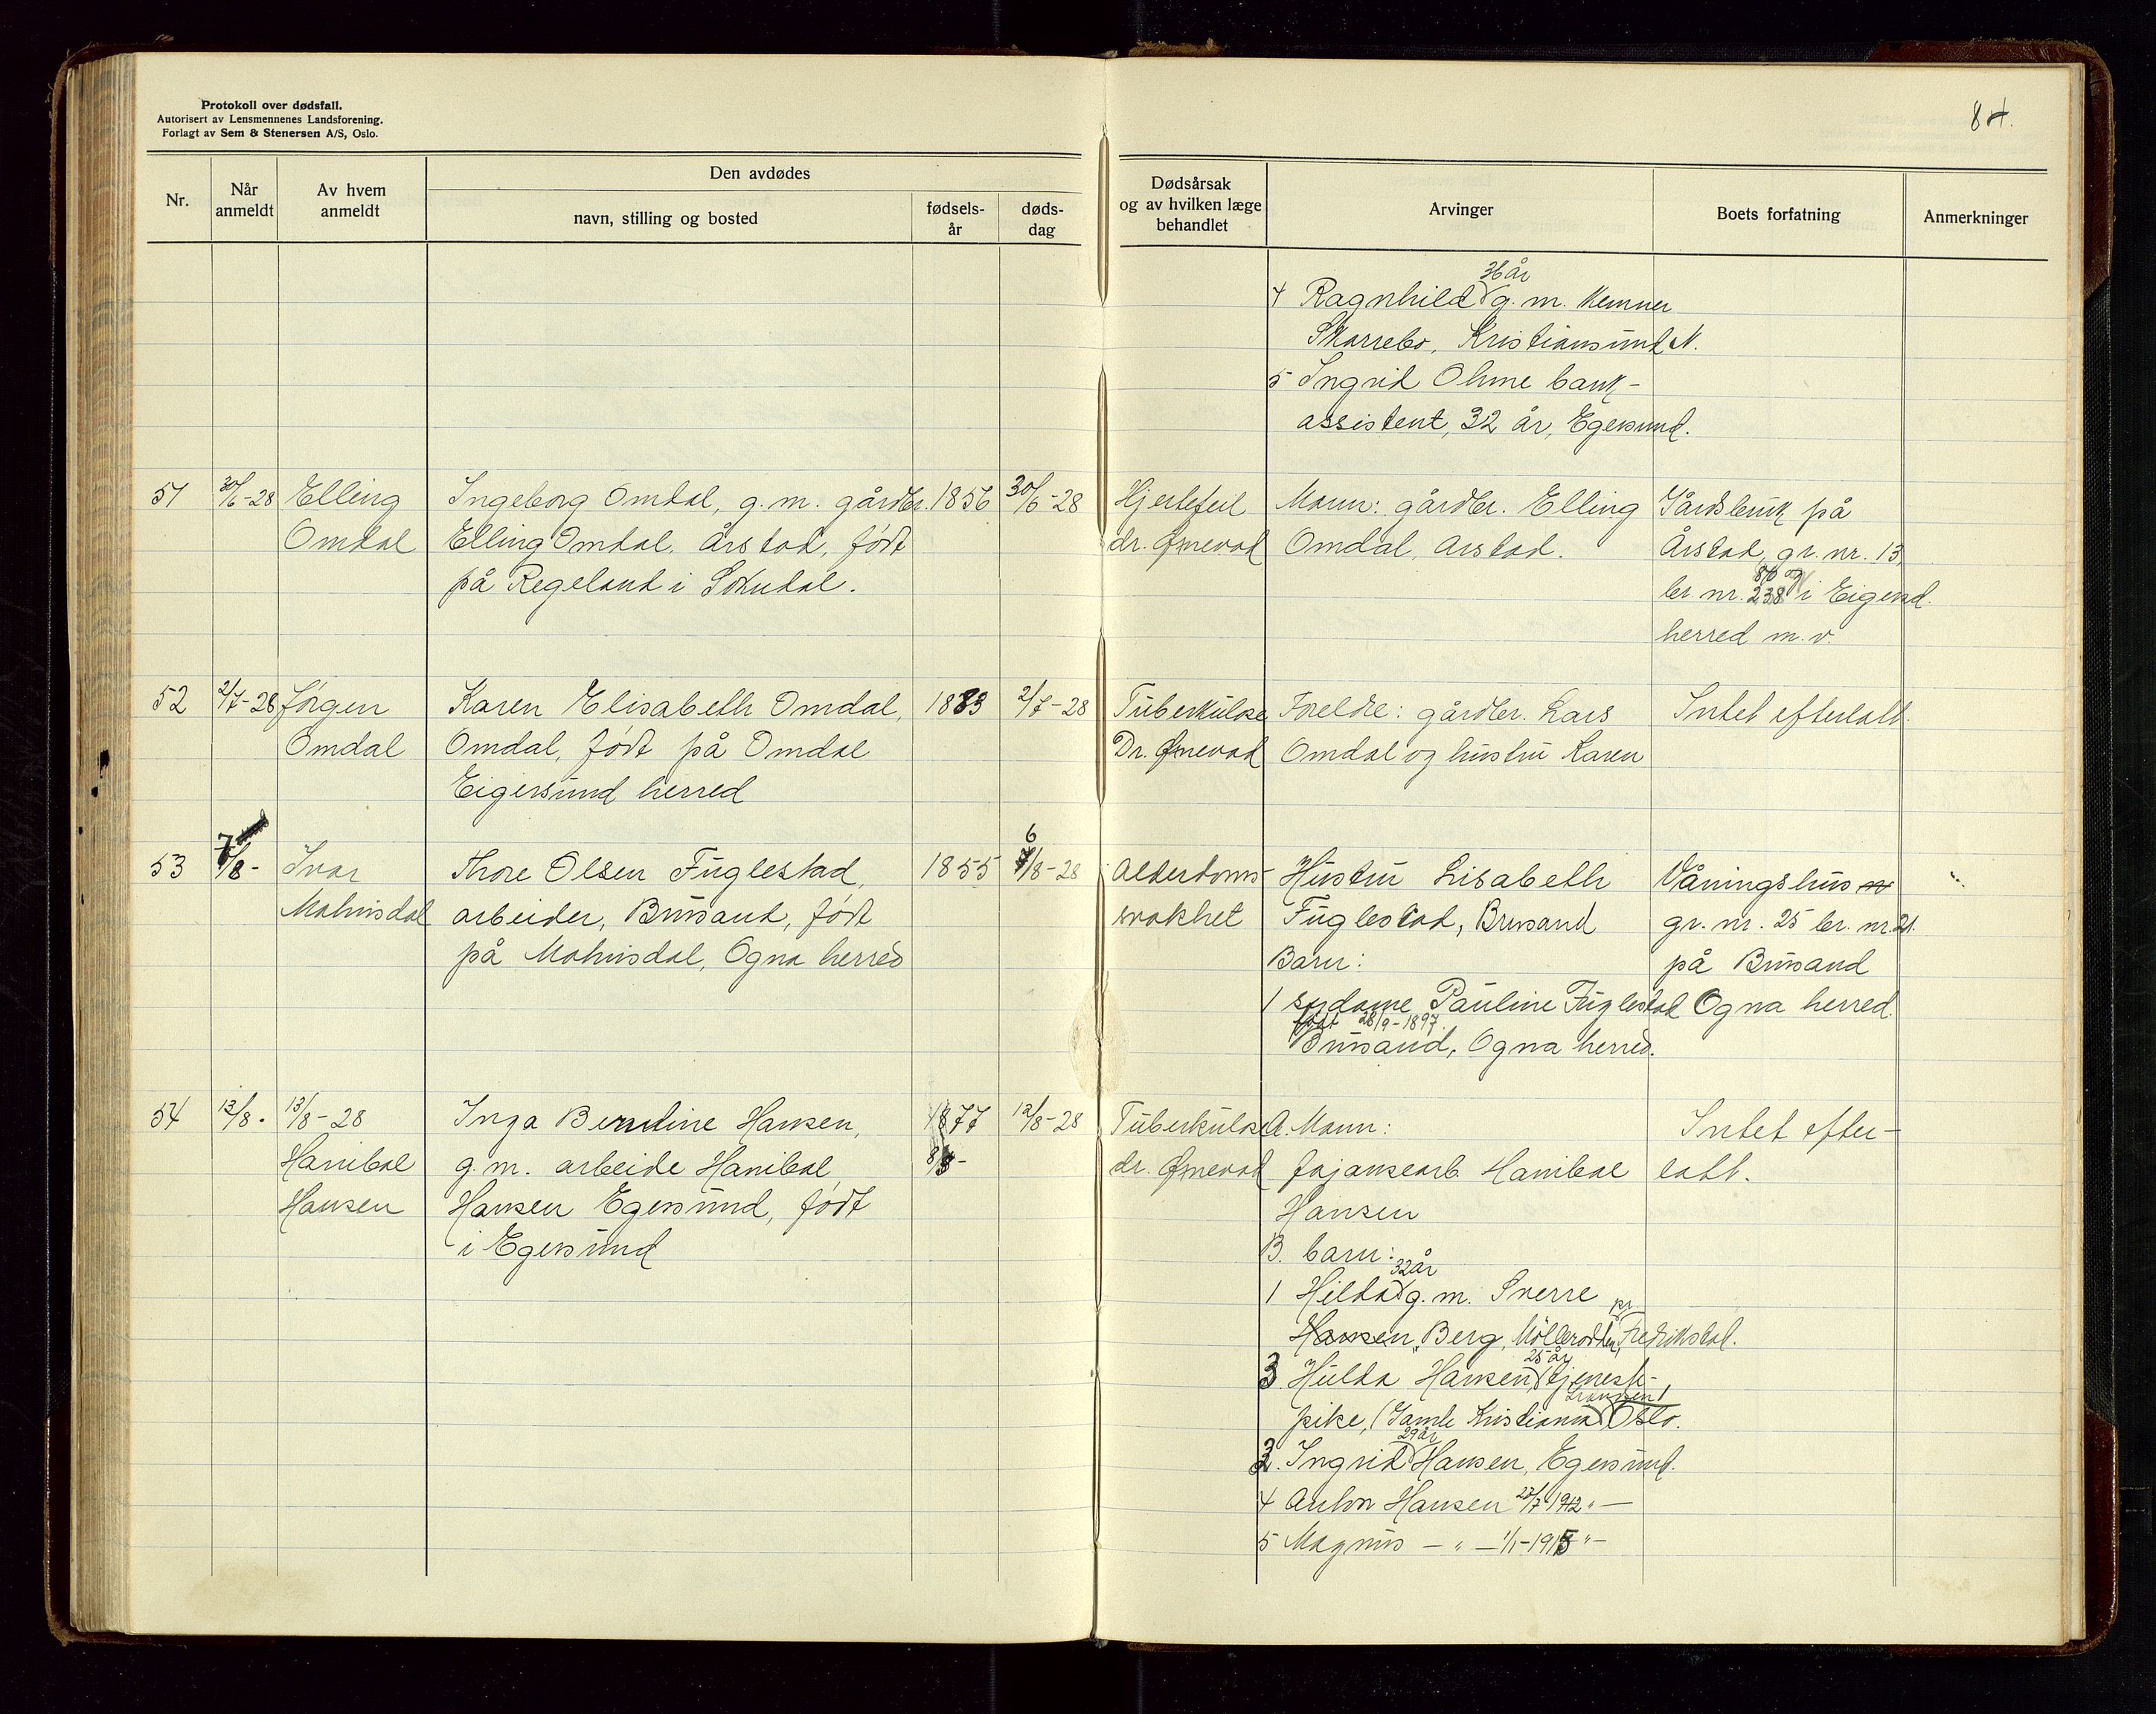 Protokoll over dødsfall.
Autorisert av Lensmennenes Landsforening.
Forlagt av Sem & Stenersen A/S, Oslo.
84.
Nr.
Når anmeldt
Av hvem anmeldt
Den avdødes
navn, stilling og bosted
fødsels-år
døds-dag
Dødsårsak og av hvilken læge behandlet
Arvinger
Boets forfatning
Anmerkninger
36 år
4 Ragnhild g. m. Kemner
Skarrebo, Kristiansund N.
5 Ingrid Ohme bank-
assistent, 32 år, Egersund.
51 30/6-28 Elling Ingeborg Omdal, g. m. gårdbr. 1856 30/6-28 Hjertefeil Mann: gårdbr. Elling Gårdsbruk på
Omdal Elling Omdal, Årstad, født dr. Omdal, Årstad. Årstad, gr. nr. 13,
på Regeland i Sokndal. br. nr. 238 i Eigersd.
herred m. v.
52 2/7-28 Jørgen Karen Elisabeth Omdal, 1883 2/7-28 Tuberkulose Foreldre: gårdbr. Lars Intet efterlatt.
Omdal Omdal, født på Omdal Dr. Omdal og hustru Karen
Eigersund herred
53 7/8- Ivar Thore Olsen Fuglestad, 1855 6/8-28 Alderdoms- Hustru Lisabeth Våningshus
Malmisdal arbeider, Brusand, født svakhet Fuglestad, Brusand gr. nr. 25 br. nr. 21.
på Malmisdal, Ogna herred Barn: på Brusand
1 sydame Pauline Fuglestad Ogna herred.
født 28/9-1897.
Brusand, Ogna herred.
54 13/8. 13/8-28 Inga Berndine Hansen, 1877 12/8-28 Tuberkulose A. Mann: Intet efter-
Hanibal g. m. arbeide Hanibal 8/8- dr. fajansearb. Hanibal latt.
Hansen Hansen Egersund, født Hansen
i Egersund B. barn:
32 år
1 Hilda g. m. Sverre
Hansen, Berg, pr. Fredrikstad.
25 år
3. Hulda Hansen tjeneste-
pike, (Gamle Kristiania) Oslo.
29 år
2. Ingrid Hansen, Egersund.
4 Anton Hansen 27/7 1912 „ —
5 Magnus — „ — 1/1-1915 „ —